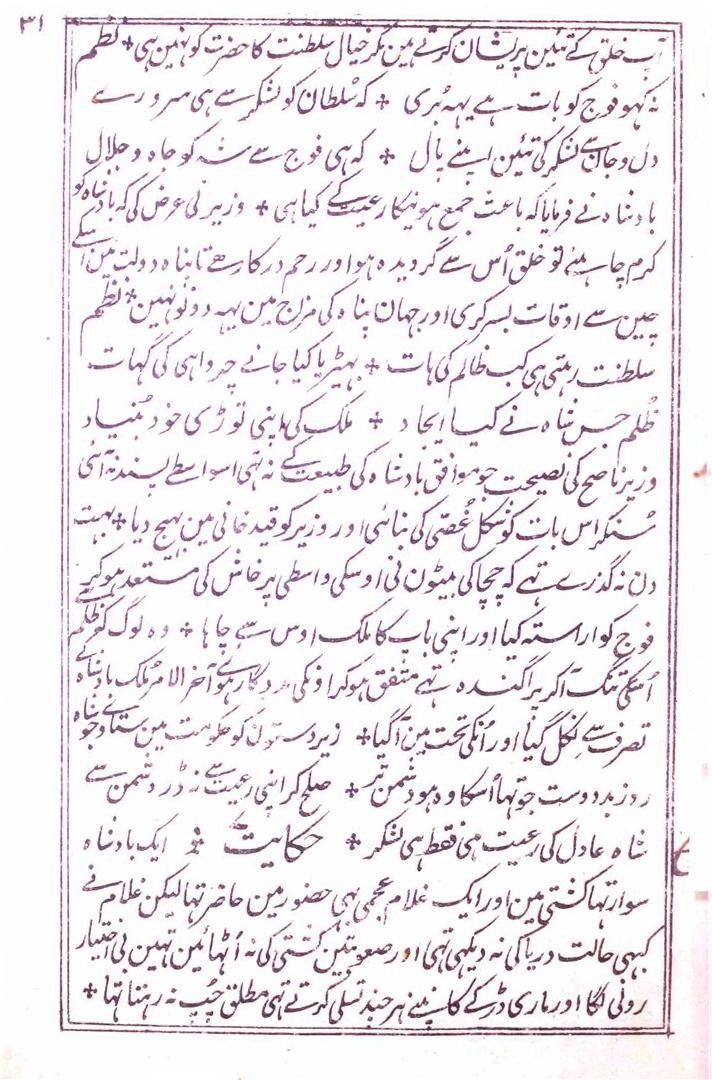 ۳۱
آپ خلق کے تئین پریشان کرتے ہین مگر خیال سلطنت کا حضرت کو نہین ہی * نظم
نہ کہو فوج کو بات ہے یہہ بُری * کہ سُلطان کو لشکر سے ہی سرورے
دل و جان سے لشکر کی تئین اپنے پال * کہ ہی فوج سے شہ کو جاہ و جلال
بادشاہ نے فرمایا کہ باعث جمع ہونیکا رعیت کے کیا ہی * وزیر نی عرض کی کہ بادشاہ کو
کرم چاہیئے تو خلق اُس سے گرویدہ ہو اور رحم درکار ہے تا پناہ دولت مین اُسکے
چین سے اوقات بسر کری اور جہان پناہ کی مزاج مین یہہ دونو نہین * نظم
سلطنت رہتی ہی کب ظالم کی ہات * بہیڑیا کیا جانے چرواہی کی گہات
ظُلم جس شاہ نے کیا ایجاد * ملک کی اپنی توڑی خود بُنیاد
وزیر ناصح کی نصیحت جو موافق بادشاہ کی طبیعت کے نہ تہی اسواسطے پسند نہ آئی
سُنکر اس بات کو شکل غُصّی کی بنائی اور وزیر کو قید خانی مین بہیج دیا * بہت
دن نہ گذرے تہے کہ چچا کی بیٹون نی اوسکی واسطی پرخاش کی مستعد ہو کر
فوج کو اراستہ کیا اور اپنی باپ کا ملک اوس سے چاہا * وہ لوگ کہ ظلم سے
اُسکی تنگ آکر پراگندہ تہے متّفق ہوکر اونکی مددگار ہوے آخر الامر مُلک بادشاہ کے
تصرف سے نکل گیا اور اُنکی تحت مین آگیا * زیردستون کو حکومت مین ستاوے جو شاہ
روز بد دوست جو تہا اُسکا وہ ہو دشمن تر * صلح کر اپنی رعیت سے نہ ڈر دشمن سے
شاہ عادل کی رعیت ہی فقط ہی لشکر * حکایت * ایک بادشاہ
سوار تہا کشتی مین اور ایک غلام عجمی بہی حضور مین حاضر تہا لیکن غلام نے
کبہی حالت دریا کی نہ دیکہی تہی اور صعوبتین کشتی کی نہ اُٹہائین تہین بی اختیار
رونی لگا اور ماری ڈر کے کانپنے ہر چند تسلی کرتے تہی مطلق چپ نہ رہتا تہا *